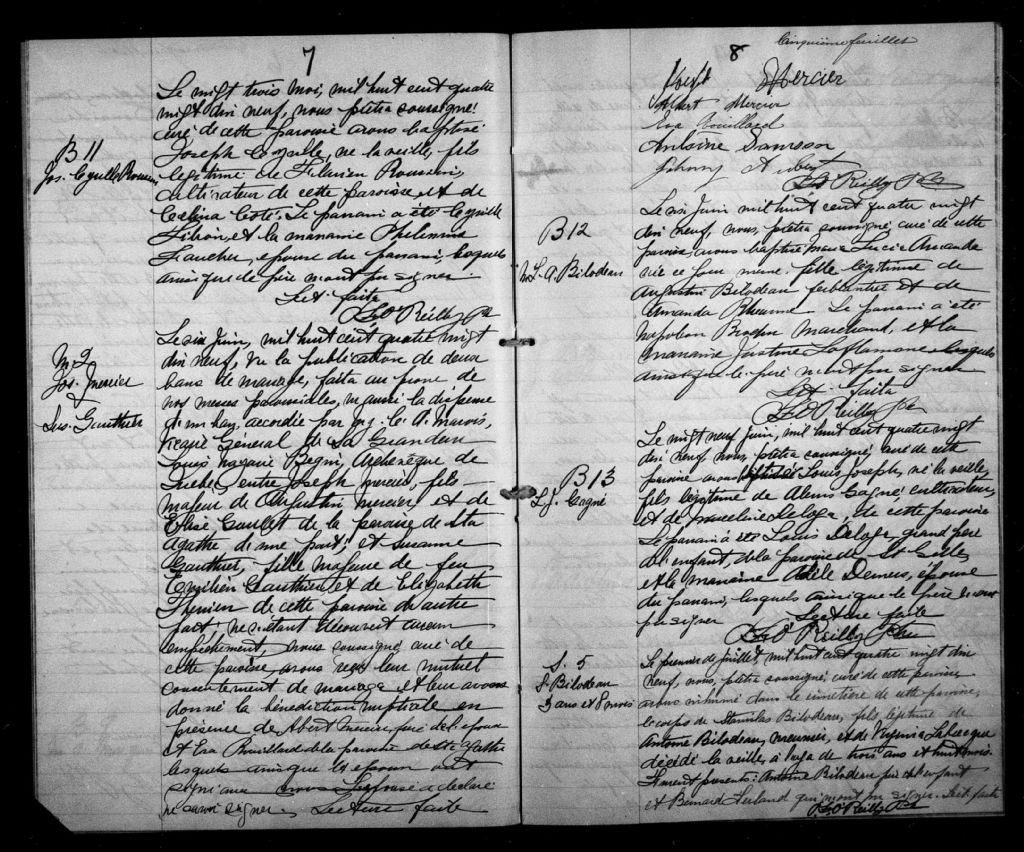 7
B 11
Le vingt trois mai, mil huit cent quatre
vingt dix neuf, nous, prêtre soussigné,
curé de cette paroisse avons baptisé
Joseph né la veille, fils
légitime de Hilarien Rousseau,
cultivateur de cette paroisse, et de
Celina Coté. Le parrain a été
et la marraine Philomène
Faucher, épouse du parrain, lesquels
ainsi que le père n'ont pu signer
Lect. faite
O'Reilly Ptre
M 2
Jos. Mercier
&
Sus. Gauthier
Le six Juin, mil huit cent quatre vingt
dix neuf, vu la publication de deux
bans de mariage, faite au prone de
nos messes paroissiales, vu aussi la dispense
d'un ban, accordée par Mgr. C. A. Marois,
Vicaire Général de Sa Grandeur
Louis Nazaire Begin, Archevêque de
Québec, entre Joseph Mercier, fils
majeur de Augustin Mercier, et de
Elise Goulet de la paroisse de Ste
Agathe d'une part; et Susanne
Gauthier, fille majeure de feu
Emilien Gauthier et de Elizabeth
Therrien de cette paroisse de autre
part; ne s'étant découvert aucun
empêchement, nous soussigné, curé de
cette paroisse, avons reçu leur mutuel
consentement de mariage et leur avons
donné la bénédiction nuptiale en
présence de Albert Mercier frère de l'époux
et Eva Rouillard de la paroisse de Ste Agathe
lesquels ainsi que les époux ont
signé avec nous L'épouse a déclaré
ne savoir signer. Lecture faite
Cinquième feuillet
8
Josef Mercier
Albert Mercier
Eva Rouillard
Antoine Samson
Johnny Aubert
O'Reilly Ptre
B 12
M. L. A. Bilodeau
Le six Juin mil huit cent quatre vingt
dix neuf, nous, prêtre soussigné, curé de cette
paroisse, avons baptisé Marie Lucie Amanda
née ce jour même, fille légitime de
Augustin Bilodeau ferblantier et de
Amanda Rheaume. Le parrain a été
Napoléon Marchand, et la
marraine Justine Laflamme lesquels
ainsi que le père n'ont pu signer
Lect. faite
O'Reilly Ptre
B 13
L. J. Gagné
Le vingt neuf Juin, mil huit cent quatre vingt
dix neuf nous, prêtre soussigné, curé de cette
paroisse avons baptisé Louis Joseph, né la veille,
fils légitime de Alexis Gagné, cultivateur,
et de Delage, de cette paroisse
Le parrain a été Louis Delage, grand père
de l'enfant, de la paroisse de St Gilles,
et la marraine Adèle Demers, épouse
du parrain, lesquels ainsi que le père n'ont
pu signer Lecture faite
O'Reilly Ptre
S. 5
S. Bilodeau
3 ans et 8 mois
Le premier de Juillet, mil huit cent quatre vingt dix
neuf, nous, prêtre soussigné, curé de cette paroisse,
avons inhumé dans le cimetière de cette paroisse,
le corps de Stanislas Bilodeau, fils légitime de
Antoine Bilodeau, meunier, et de Virginia Labrecque
décédé la veille, à l'age de trois ans et huit mois.
Etaient présents: Antoine Bilodeau père de l'enfant
et Bernard Ferland qui n'ont pu signer. Lect. faite
O'Reilly Ptre